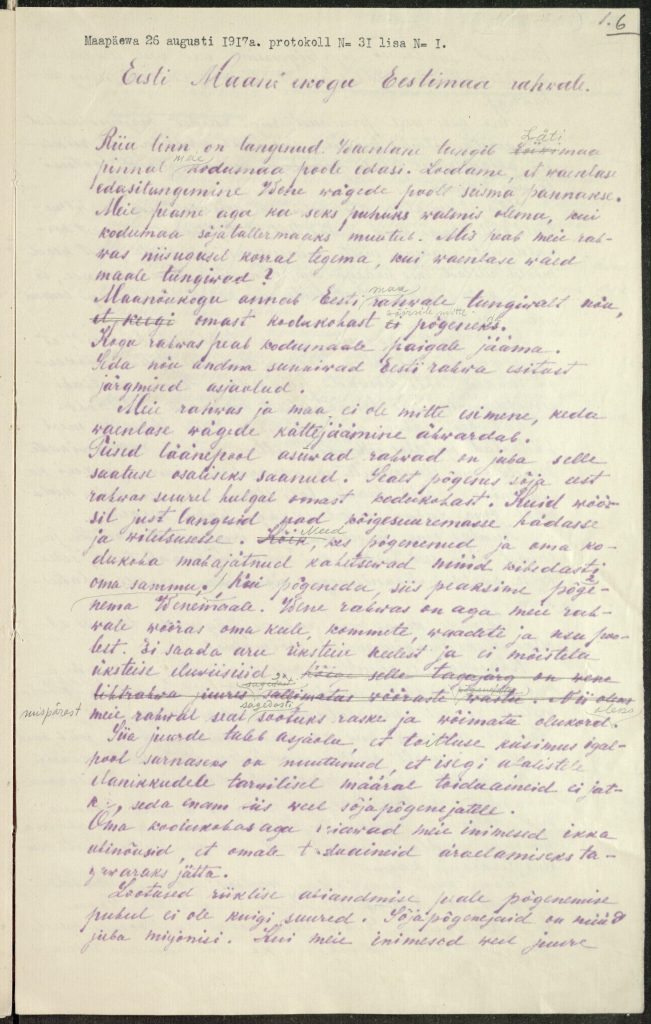 1.6
Maapäewa 26 augusti 1917a. protokoll N= 31 lisa N= I.
Eesti Maanõukogu Eestimaa rahwale.
Riia linn on langenud. Waenlane tungib Läti maa
pinnal meie kodumaa poole edasi. Loodame, et waenlase
edasitungimine Wene wägede poolt seisma pannakse.
Meie peame aga ka seks puhuks walmis olema, kui
kodumaa sõjatallermaaks muutub. Mis peab meie rah-
was niisugusel korral tegema, kui waenlase wäed
maale tungiwad?
Maanõukogu annab Eesti maa rahwale tungiwalt nõu,
et keegi omast kodukohast ei põgeneks.
Kogu rahwas peab kodumaale paigale jääma.
Seda nõu andma sunniwad Eesti rahwa esitust
järgmised asjaolud.
Meie rahwas ja maa ei ole mitte esimene, keda
waenlase wägede kättejäämine ähwardab.
Teised läänepool asuwad rahwad on juba selle
saatuse osaliseks saanud. Sealt põgenes sõja eest
rahwas suurel hulgal omast kodukohast. Kuid wõõr-
sil just langesid nad kõigesuuremasse hädasse
ja wiletsusesse. Kõik Need, kes põgenenud ja oma ko-
dukoha mahajätnud kahetsewad nüüd kibedasti
oma sammu. Kui põgeneda, siis peaksime põge-
nema Wenemaale. Wene rahwas on aga meie rah-
wale wõõras oma keele, kommete, waadete ja usu poo-
lest. Ei saada aru üksteise keelest ja ei mõisteta
üksteise eluwiisisid. Kõige selle tagajärg on wene
lihtrahwa juures sagedast sallimatus wõõraste wastu. Nii oleks
mispärast meie rahwal seal sagedasti raske ja wõimata olukord.
Siia juurde tuleb asjaolu, et toitluse küsimus igal-
pool sarnaseks on muutunud, et isegi alalistele
elanikkudele tarwilisel määral toiduaineid ei jät-
k, seda enam siis weel sõjapõgenejatele.
Oma kodukohas aga leiawad meie inimesed ikka
abinõusid, et omale toiduaineid äraelamiseks ta-
garwaraks jätta.
Lootused riiklise abiandmise peale põgenemise
puhul ei ole kuigi suured. Sõjapõgenejaid on nüüd
juba miljonisi. Kui meie inimesed weel juure